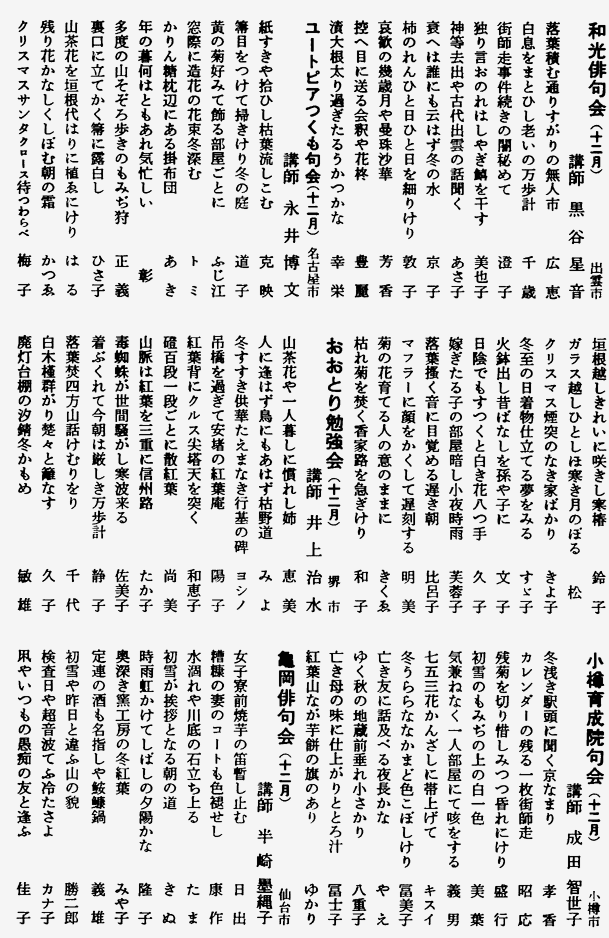 和光俳句会(十二月)
出雲市
講師 黒谷星音
落葉積む通りすがりの無人市 広恵
白息をまとひし老いの万歩計 千歳
街師走事件続きの闇秘めて 澄子
独り言おのれはしやぎ鱗を干す 美也子
神等去出や古代出雲の話聞く あさ子
衰へは誰にも云はず冬の水 京子
柿のれんひと日ひと日を細りけり 敦子
哀歓の幾歳月や曼珠沙華 芳香
控へ目に送る会釈や花柊 豊麗
漬大根太り過ぎたるうかつかな 幸栄
ユートピアつくも句会(十二月) 名古屋市
講師 永井博文
紙すきや拾ひし枯葉流しこむ 克映
箒目をつけて掃きけり冬の庭 道子
黄の菊好みて飾る部屋ごとに ふじ江
窓際に造花の花束冬深む トミ
かりん糖枕辺にある掛布団 あき
年の暮何はともあれ気忙しい 彰
多度の山そぞろ歩きのもみぢ狩 正義
裏口に立てかく箒に露白し ひさ子
山茶花を垣根代はりに植ゑにけり はる
残り花かなしくしぼむ朝の霜 かつゑ
クリスマスサンタクロース待つわらべ 梅子
垣根越しきれいに咲きし寒椿 鈴子
ガラス越しひとしほ寒き月のぼる 松
クリスマス煙突のなき家ばかり きよ子
冬至の日着物仕立てる夢をみる すゞ子
火鉢出し昔ばなしを孫や子に 文子
日陰でもすつくと白き花八つ手 久子
嫁ぎたる子の部屋暗し小夜時雨 芙蓉子
落葉掻く音に目覚める遅き朝 比呂子
マフラーに顔をかくして遅刻する 明美
菊の花育てる人の意のままに きくゑ
枯れ菊を焚く香家路を急ぎけり 和子
おおとり勉強会(十二月) 堺市
講師 井上治水
山茶花や一人暮しに慣れし姉 恵美
人に逢はず鳥にもあはず枯野道 みよ
冬すすき供華たえまなき行基の碑 ヨシノ
吊橋を過ぎて安堵の紅葉庵 陽子
紅葉背にクルス尖塔天を突く 和恵子
磴百段一段ごとに散紅葉 尚美
山脈は紅葉を三重に信州路 たか子
毒蜘蛛が世間騒がし寒波来る 佐美子
着ぶくれて今朝は厳しき万歩計 静子
落葉焚四方山話けむりをり 千代
白木槿群がり楚々と離なす 久子
廃灯台棚の汐錆冬かもめ 敏雄
小樽育成院句会(十二月)
小樽市
講師 成田智世子
冬浅き駅頭に聞く京なまり 孝香
カレンダーの残る一枚街師走 昭応
残菊を切り惜しみつつ昏れにけり 盛行
初雪のもみぢの上の白一色 美葉
気兼ねなく一人部屋にて咳をする 義男
七五三花かんざしに帯上げて キスイ
冬うららななかまど色こぼしけり 冨美子
亡き友に話及べる夜長かな やえ
ゆく秋の地蔵前垂れ小さかり 八重子
亡き母の味に仕上がりととろ汁 冨士子
紅葉山なが芋餅の旗のあり ゆかり
亀岡俳句会(十二月)
仙台市
講師 半崎墨縄子
女子寮前焼芋の笛暫し止む 日出
糟糠の妻のコートも色褪せし 康作
水涸れや川底の石立ち上る たま
初雪が挨拶となる朝の道 きぬ
時雨虹かけてしばしの夕陽かな 隆子
奥深き窯工房の冬紅葉 みや子
定連の酒も名指しや鮟鱇鍋 義雄
初雪や昨日と違ふ山の貌 勝二郎
検査日や超音波てふ冷たさよ カナ子
凩やいつもの愚痴の友と逢ふ 佳子